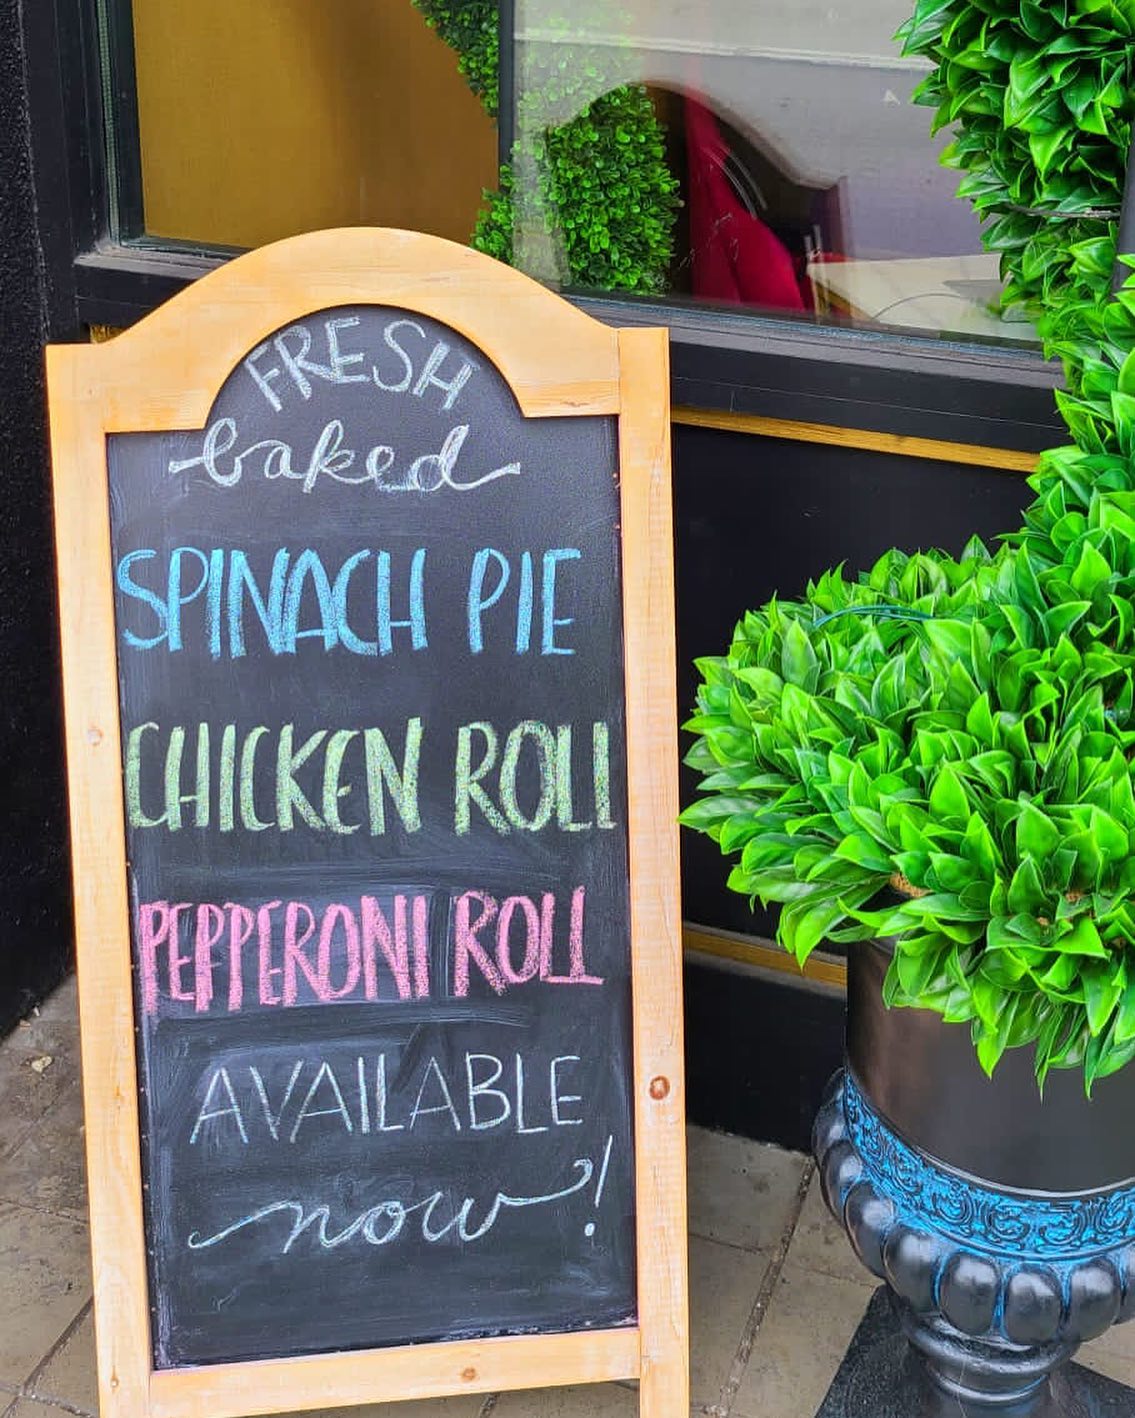 FRESH
baked
SPINACH PIE
CHICKEN ROLL
PEPPERONI ROLL
AVAILABLE
now!